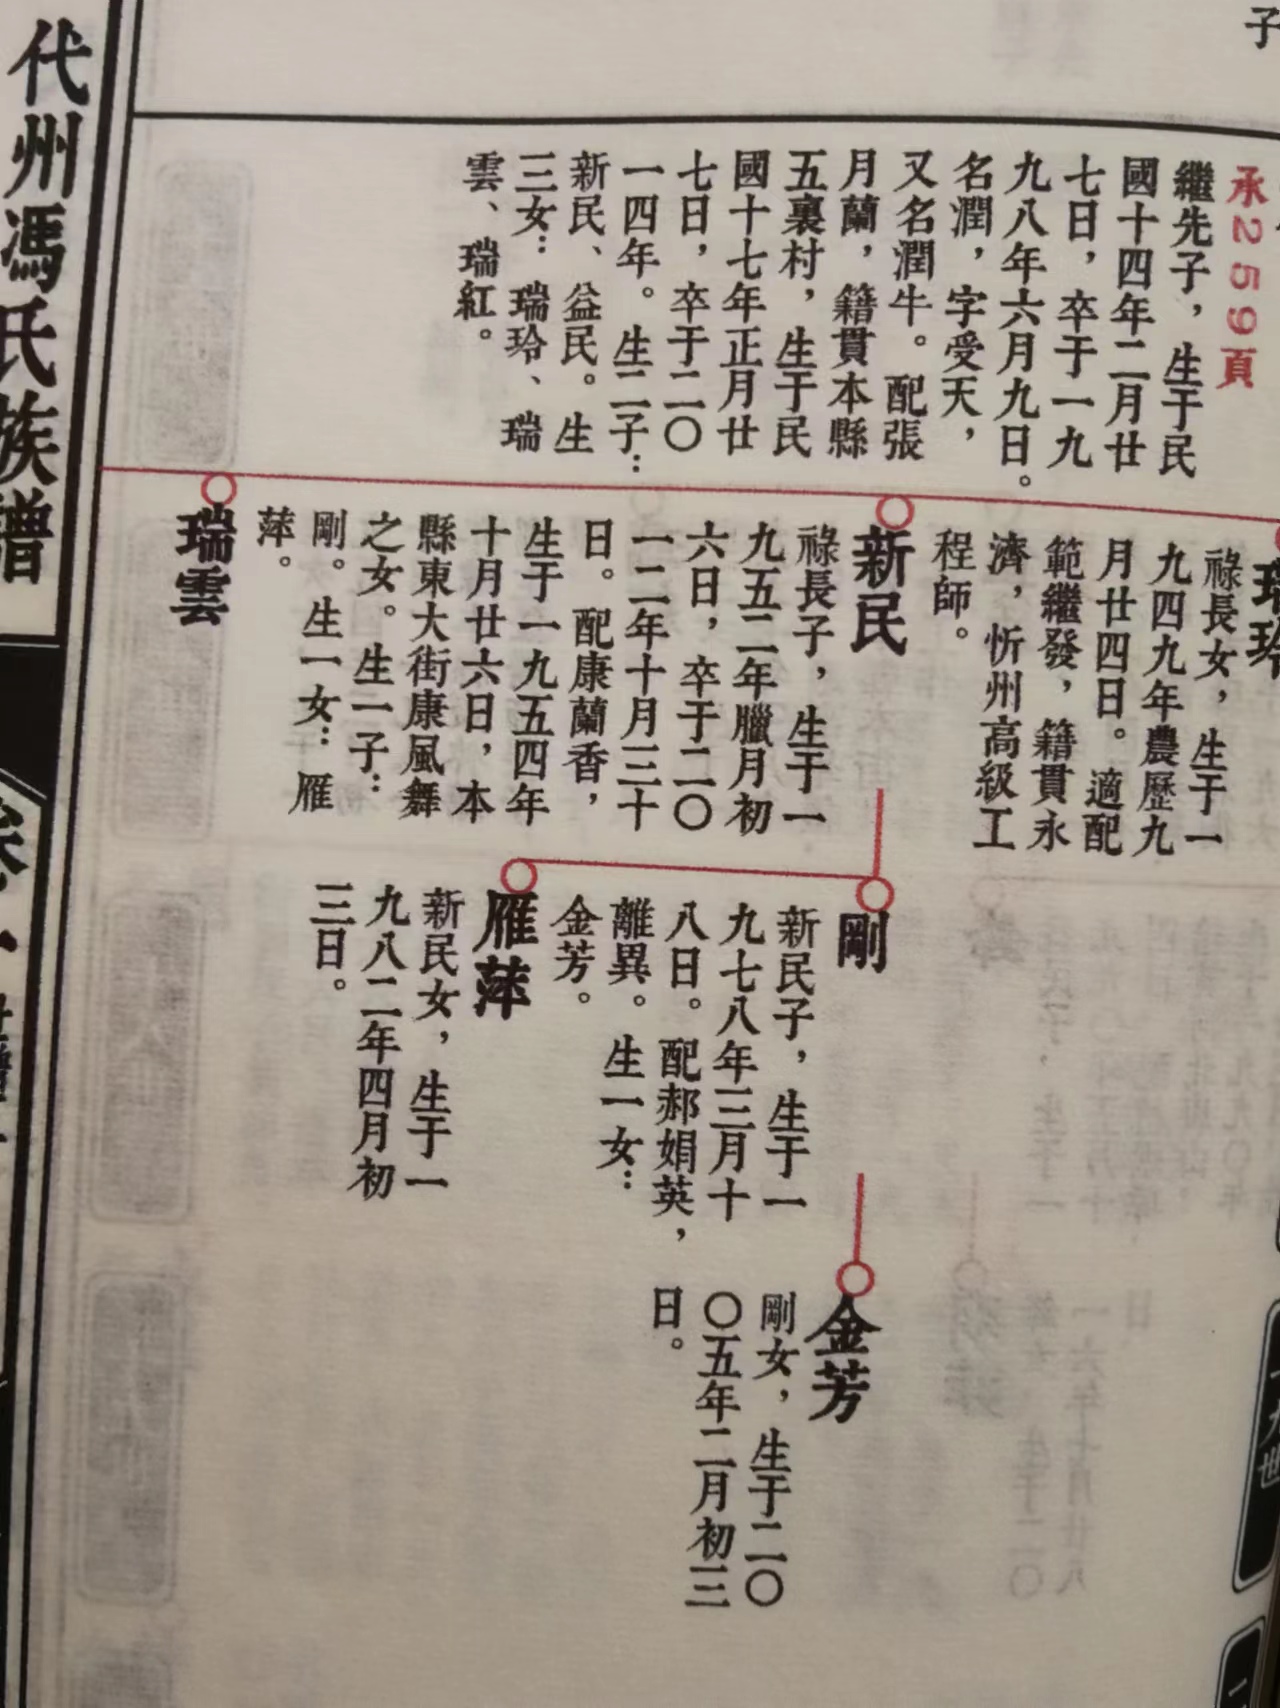 子
承259頁
繼先子，生于民
國十四年二月廿
七日，卒于一九
九八年六月九日。
名潤，字受天，
又名潤牛。配張
月蘭，籍貫本縣
五裏村，生于民
國十七年正月廿
七日，卒于二〇
一四年。生二子：
新民、益民。生
三女：瑞玲、瑞
雲、瑞紅。
瑞玲
祿長女，生于一
九四九年農歷九
月廿四日。適配
範繼發，籍貫永
濟，忻州高級工
程師。
新民
祿長子，生于一
九五二年臘月初
六日，卒于二〇
一二年十月三十
日。配康蘭香，
生于一九五四年
十月廿六日，本
縣東大街康風舞
之女。生一子：
剛。生一女：雁
萍。
瑞雲
剛
新民子，生于一
九七八年三月十
八日。配郝娟英，
離異。生一女：
金芳。
雁萍
新民女，生于一
九八二年四月初
三日。
金芳
剛女，生于二〇
〇五年二月初三
日。
代州馮氏族譜